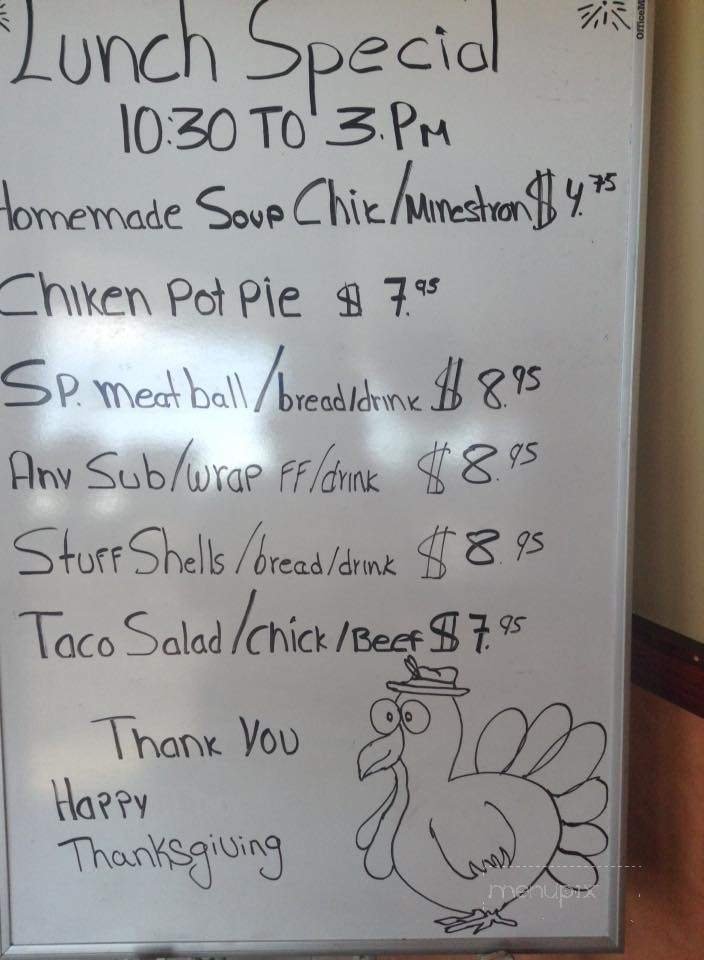 Lunch Special
10:30 TO 3.PM
Homemade Soup Chik/Minestron $4.75
Chiken Pot Pie $ 7.95
SP. meatball/bread/drink $ 8.95
Any Sub/wrap FF/drink $ 8.95
Stuff Shells/bread/drink $ 8.95
Taco Salad/chick/Beef $ 7.95
Thank You
Happy
Thanksgiving
menupix